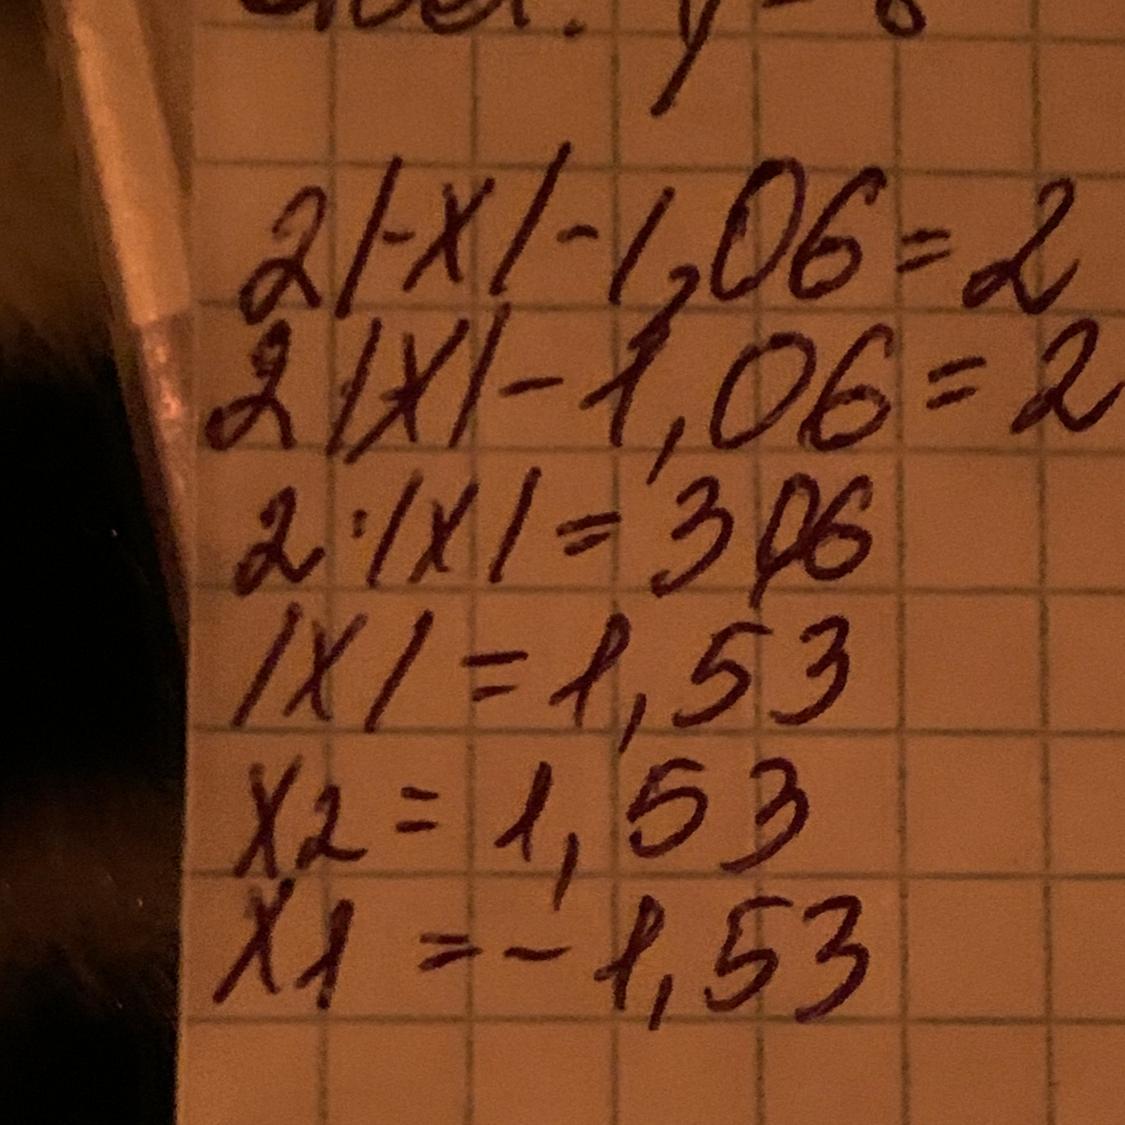 y = 6
2|-x|-1,06=2
2|x|-1,06=2
2·|x|=3,06
|x|=1,53
x2=1,53
x1=-1,53